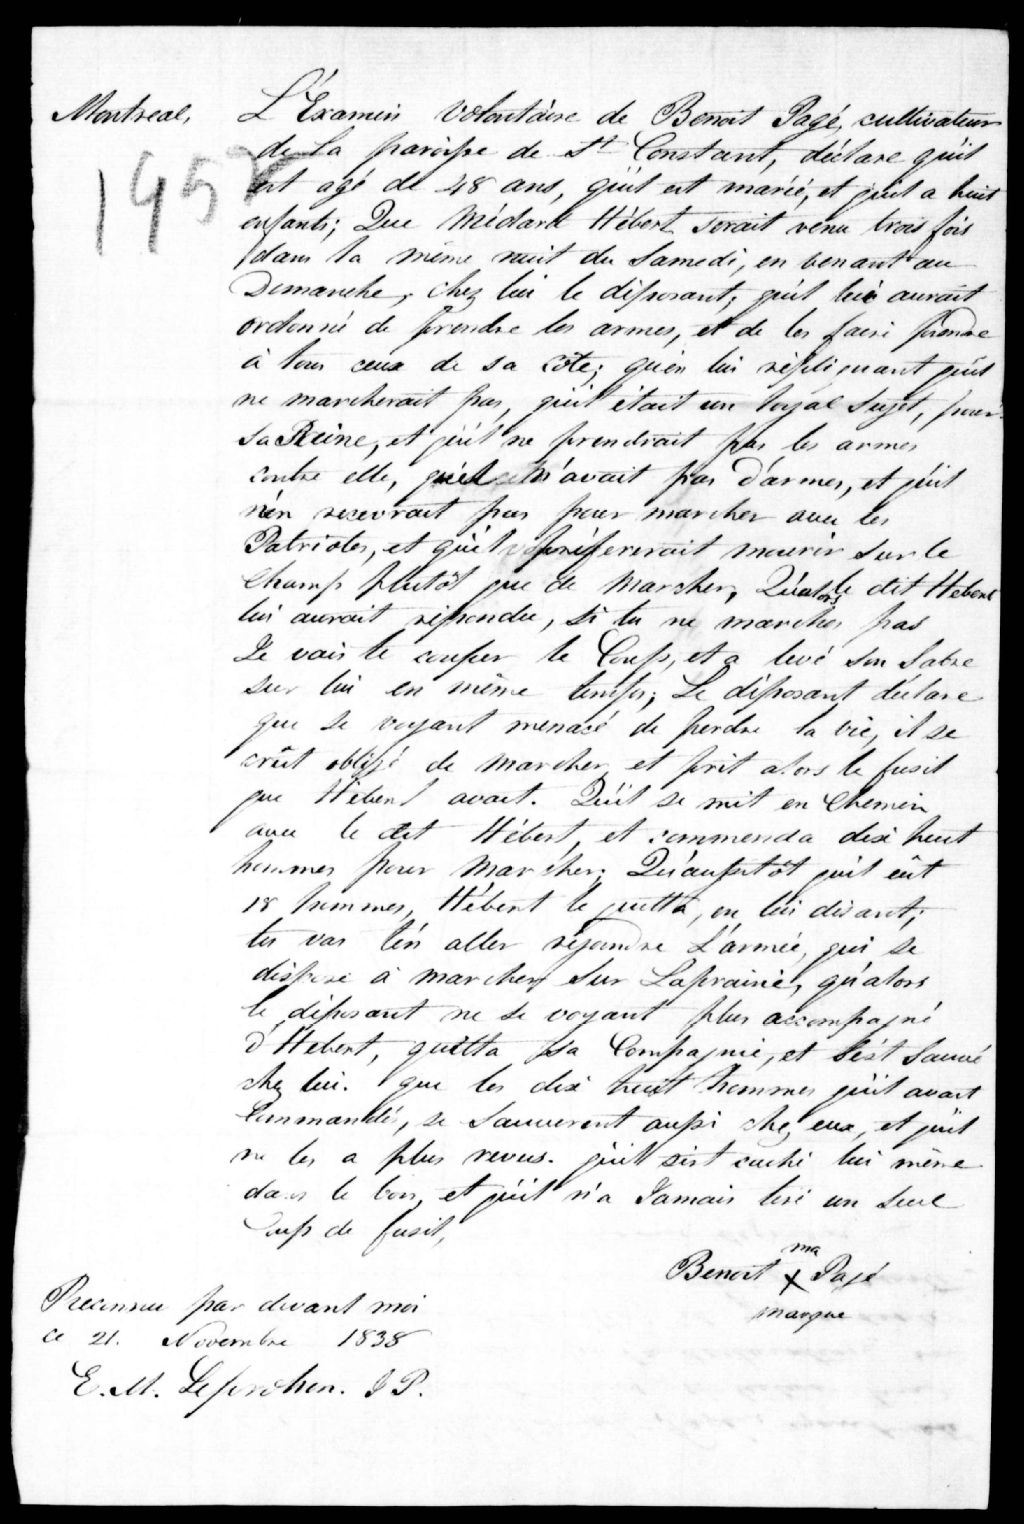 Montreal, L'Examen Volontaire de Benoit Pagé, cultivateur
de la paroisse de St Constant, déclare qu'il
1957
est agé de 48 ans, qu'il est marié, et qu'il a huit
enfants; Que Médard Hébert serait venu trois fois
dans la même nuit du Samedi, en venant au
Demanche, chez lui le déposant, qu'il lui aurait
ordonné de prendre les armes, et de les faire prendre
à tous ceux de sa côte; qu'en lui répliquant qu'il
ne marcherait pas, qu'il était un loyal sujet, pour
sa Reine, et qu'il ne prendrait pas les armes
contre elle, qu'il n'avait pas d'armes, et qu'il
n'en recevrait pas pour marcher avec les
Patriotes, et qu'il préfererait mourir sur le
Champ plutôt que de marcher, Qu'alors le dit Hébert
lui aurait répondu, si tu ne marches pas
Je vais te couper le Coup, et a levé son Sabre
sur lui en même temps; Le déposant déclare
que se voyant menacé de perdre la vie, il se
crût obligé de marcher et prit alors le fusil
que Hébert avait. Qu'il se mit en Chemin
avec le dit Hébert, et commenda dix huit
hommes pour marcher; Qu'aussitôt qu'il eût
18 hommes, Hébert le quitta, en lui disant;
tu vas t'en aller rejoindre L'armée, qui se
dispose à marcher sur Laprairie, qu'alors
le déposant ne se voyant plus accompagné
d'Hebert, quitta sa Compagnie, et s'est sauvé
chez lui. que les dix huit hommes qu'il avait
Commandés, se sauverent aussi chez eux, et qu'il
ne les a plus revus. qu'il s'est caché lui même
dans le bois, et qu'il n'a Jamais tiré un seul
Coup de fusil,
ma
Benoit X Pagé
marque
Reconnu par devant moi
ce 21. Novembre 1838
E. M. Leprohon. J P.